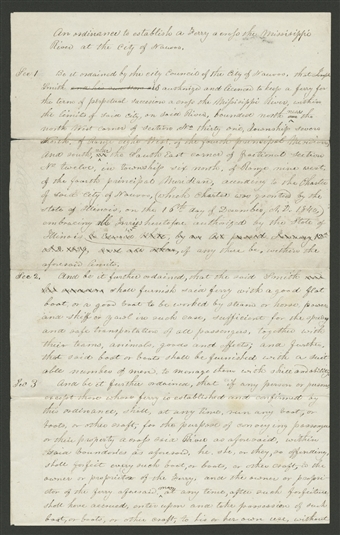 An ordinance to establish a Ferry across the Mississippi
River at the City of Nauvoo.
Sec 1. Be it ordained by the city Council of the City of Nauvoo, that
Smith is authorized and licensed to keep a ferry for
the term of perpetual succession across the Mississippi River, within
the limits of said City, on said River, bounded north the
north West corner of section No. thirty one, Township seven
north, of Range eight West, of the fourth principal Meridian,
and south, the South East corner of fractional section
twelve, in township six north, of Range nine west
of the fourth principal Meridian, according to the Charter
of said City of Nauvoo, (which Charter was granted by the
State of Illinois, on the 16th day of December, A.D. 1840,)
embracing the ferry heretofore authorized by the State of
Illinois
if any there be, within the
aforesaid limits.
Sec 2. And be it further ordained, that the said Smith
shall furnish said ferry with a good flat
boat, or a good boat to be worked by steam or horse power,
and skiff or yawl in such case, sufficient for the speedy
and safe transportation of all passengers, together with
their teams, animals, goods and effects, and further,
that said boat or boats shall be furnished with a suit
able number of men to manage them with skill and ability.
Sec 3 And be it further ordained, that if any person or persons,
except those whose ferry is established and confirmed by
this ordinance, shall, at any time, run any boat, or
boats, or other craft, for the purpose of conveying passengers
or their property across said River as aforesaid, within
bounderies as aforesaid, he, she, or they, so offending,
shall forfeit every such boat, or boats, or other craft, to the
owner or proprietor of the Ferry; and the owner or proprie
tor of the ferry aforesaid may at any time, after such forfeiture
shall have accrued, enter upon and take possession of such
boat, or boats, or other craft, to his or her own use, without